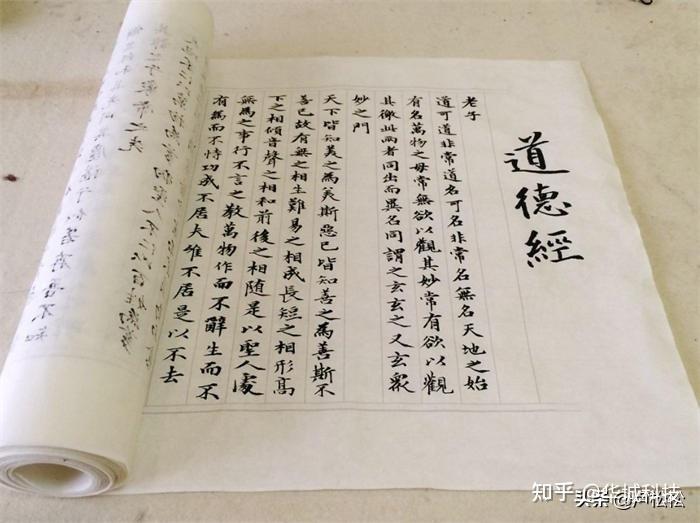 道德經
老子
道可道非常道名可名非常名無名天地之始
有名萬物之母常無欲以觀其妙常有欲以觀
其徼此兩者同出而異名同謂之玄玄之又玄眾
妙之門
天下皆知美之為美斯惡已皆知善之為善斯不
善已故有無之相生難易之相成長短之相形高
下之相傾音聲之相和前後之相随是以聖人處
無為之事行不言之教萬物作而不辭生而不
有為而不恃功成不居夫唯不居是以不去
之子象帝之先
知乎 @华城科技
头条 @卢松松